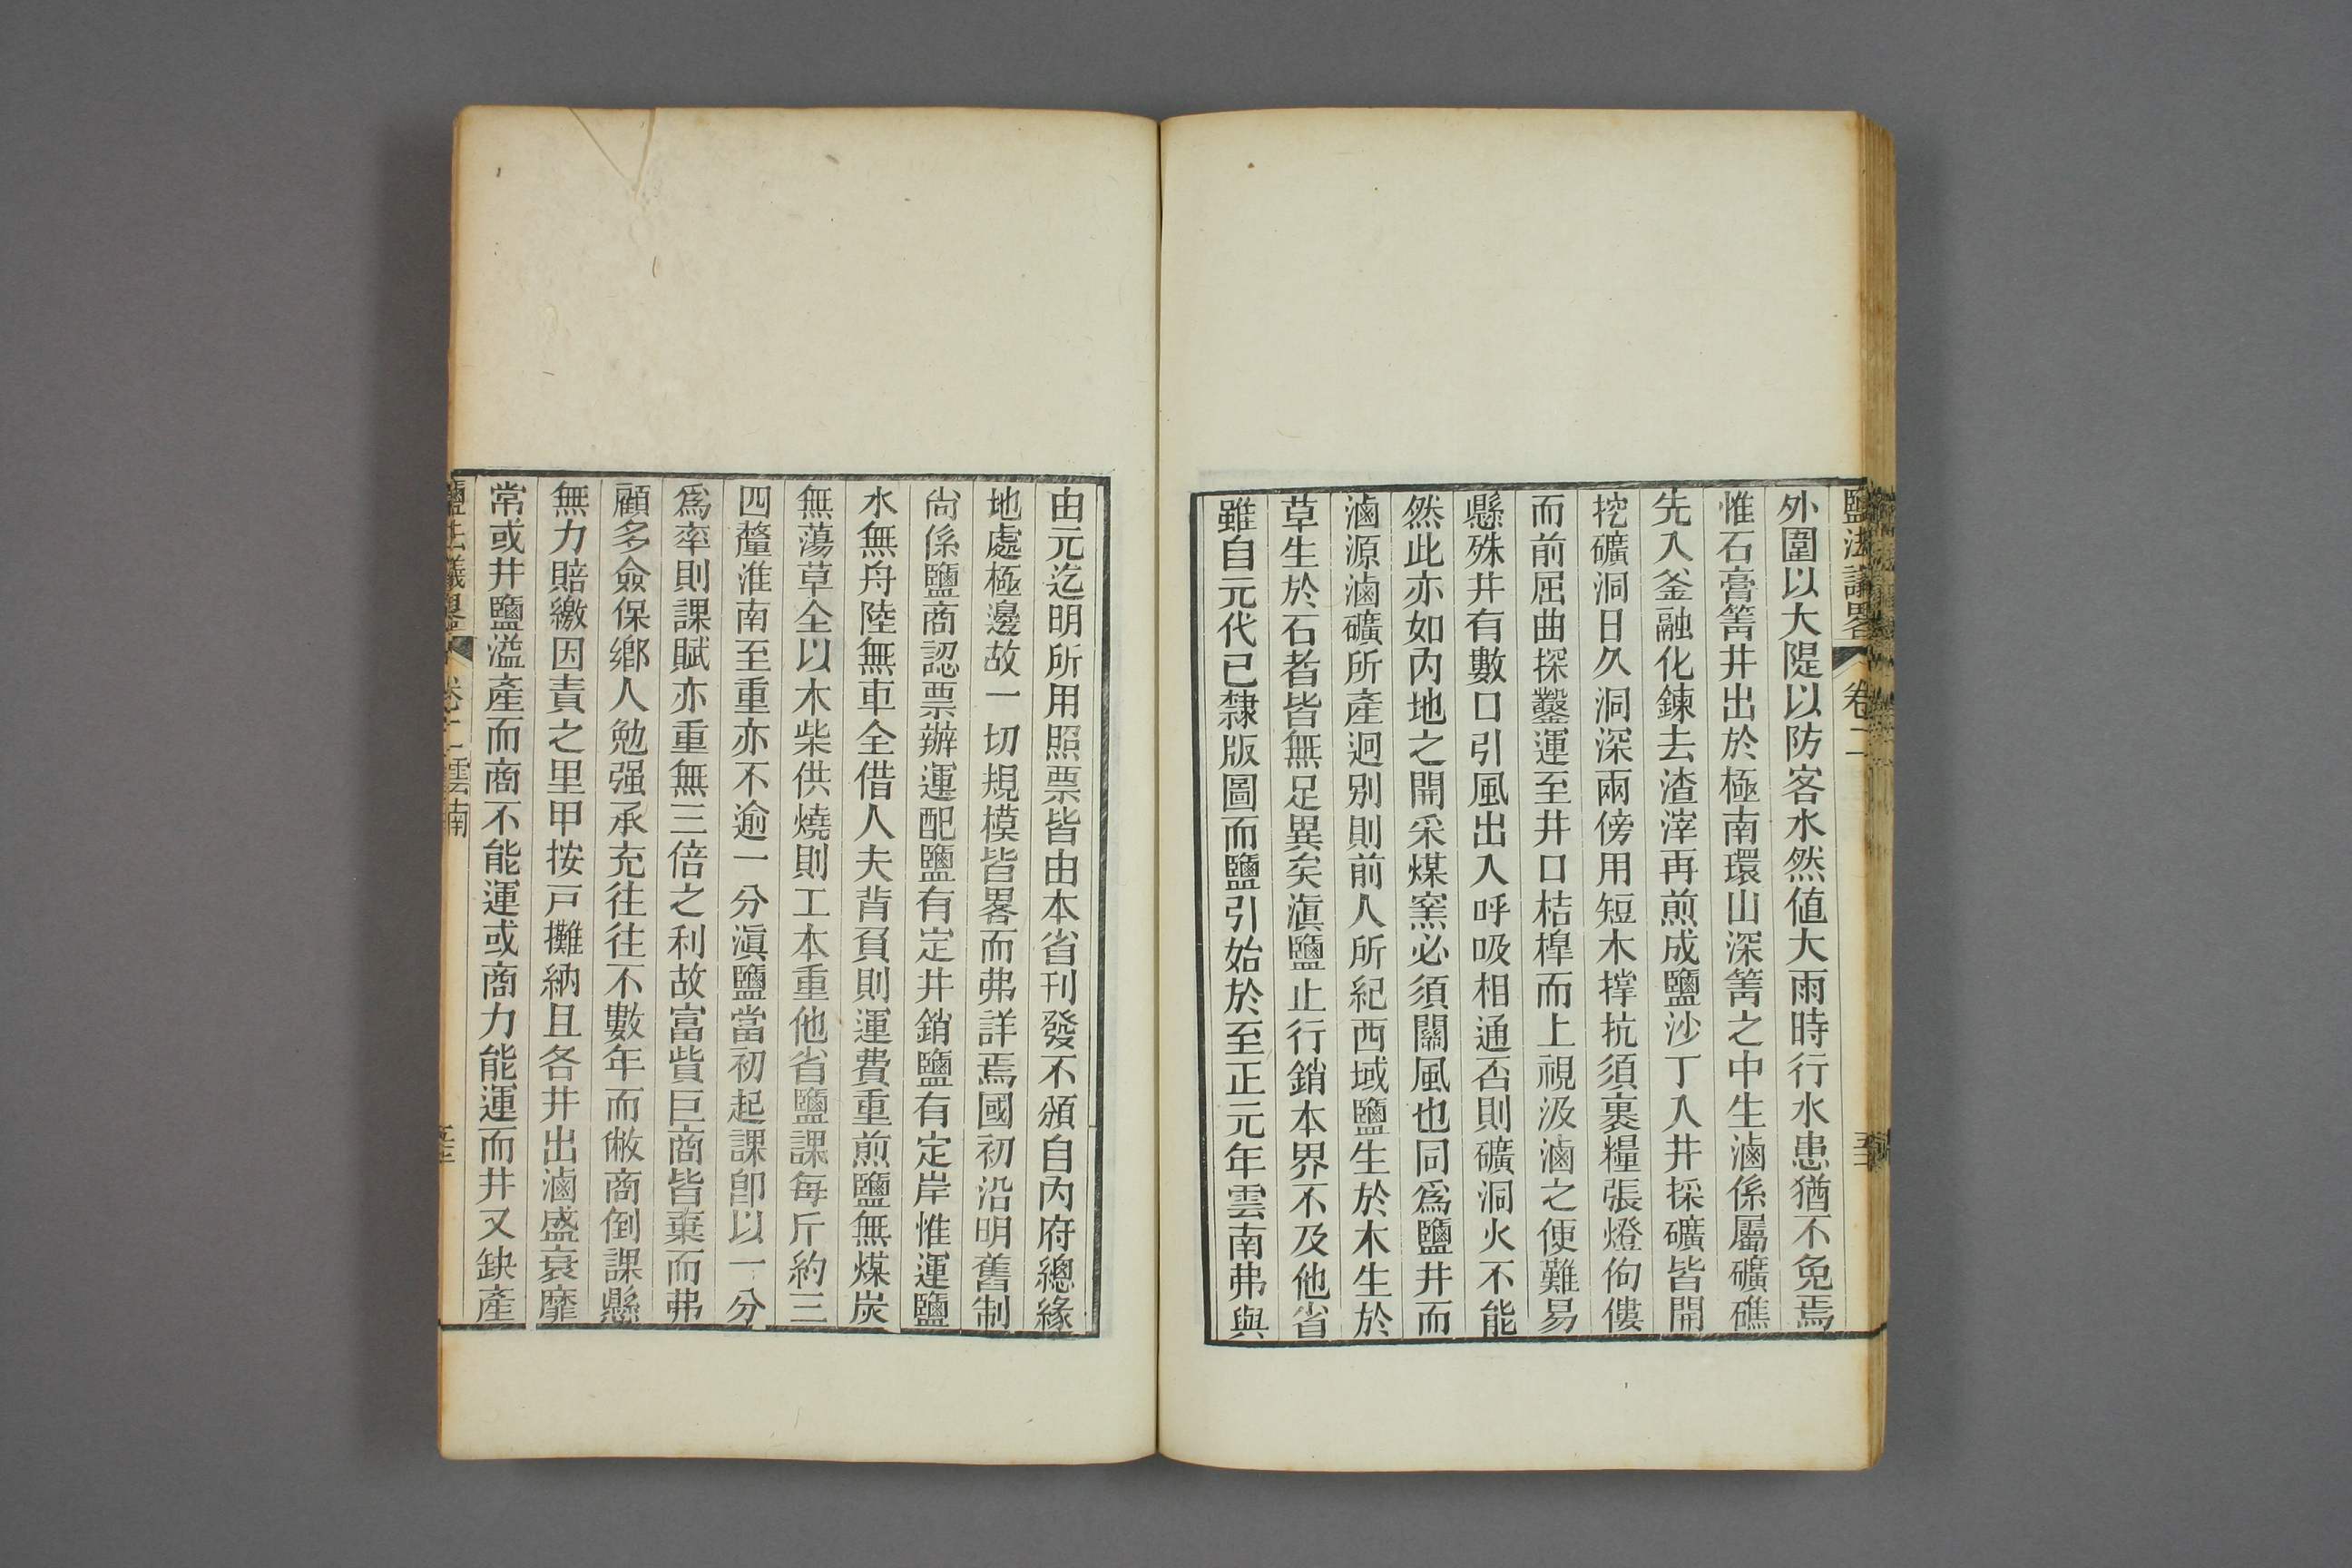 鹽法議畧 卷二
外圍以大隄以防客水然值大雨時行水患猶不免焉
惟石膏箐井出於極南環山深箐之中生滷係屬礦礁
先入釜融化鍊去渣滓再煎成鹽沙丁入井採礦皆開
挖礦洞日久洞深兩傍用短木撑抗須裹糧張燈佝僂
而前屈曲探鑿運至井口桔槹而上視汲滷之便難易
懸殊井有數口引風出入呼吸相通否則礦洞火不能
然此亦如內地之開采煤窯必須關風也同爲鹽井而
滷源滷礦所產迥別則前人所紀西域鹽生於木生於
草生於石者皆無足異矣滇鹽止行銷本界不及他省
雖自元代已隸版圖而鹽引始於至正元年雲南弗與
由元迄明所用照票皆由本省刊發不頒自內府總緣
地處極邊故一切規模皆畧而弗詳焉國初沿明舊制
尙係鹽商認票辦運配鹽有定井銷鹽有定岸惟運鹽
水無舟陸無車全借人夫背負則運費重煎鹽無煤炭
無蕩草全以木柴供燒則工本重他省鹽課每斤約三
四釐淮南至重亦不逾一分滇鹽當初起課卽以一分
爲率則課賦亦重無三倍之利故富貲巨商皆棄而弗
顧多僉保鄉人勉强承充往往不數年而敝商倒課懸
無力賠繳因責之里甲按戶攤納且各井出滷盛衰靡
常或井鹽溢產而商不能運或商力能運而井又缺產
鹽法議畧 卷二 雲南